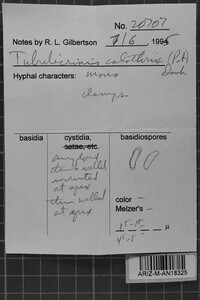 No. 20707
Notes by R. L. Gilbertson 7/6 1995
Tubulicrinis calothrix (Pat)
Donk
Hyphal characters: mono
clamps
basidia
cystidia,
setae, etc.
basidiospores
amyloid
thin walled
at apex
thin walled
at apex
color —
Melzer's —
µ
ARIZ-M-AN18325